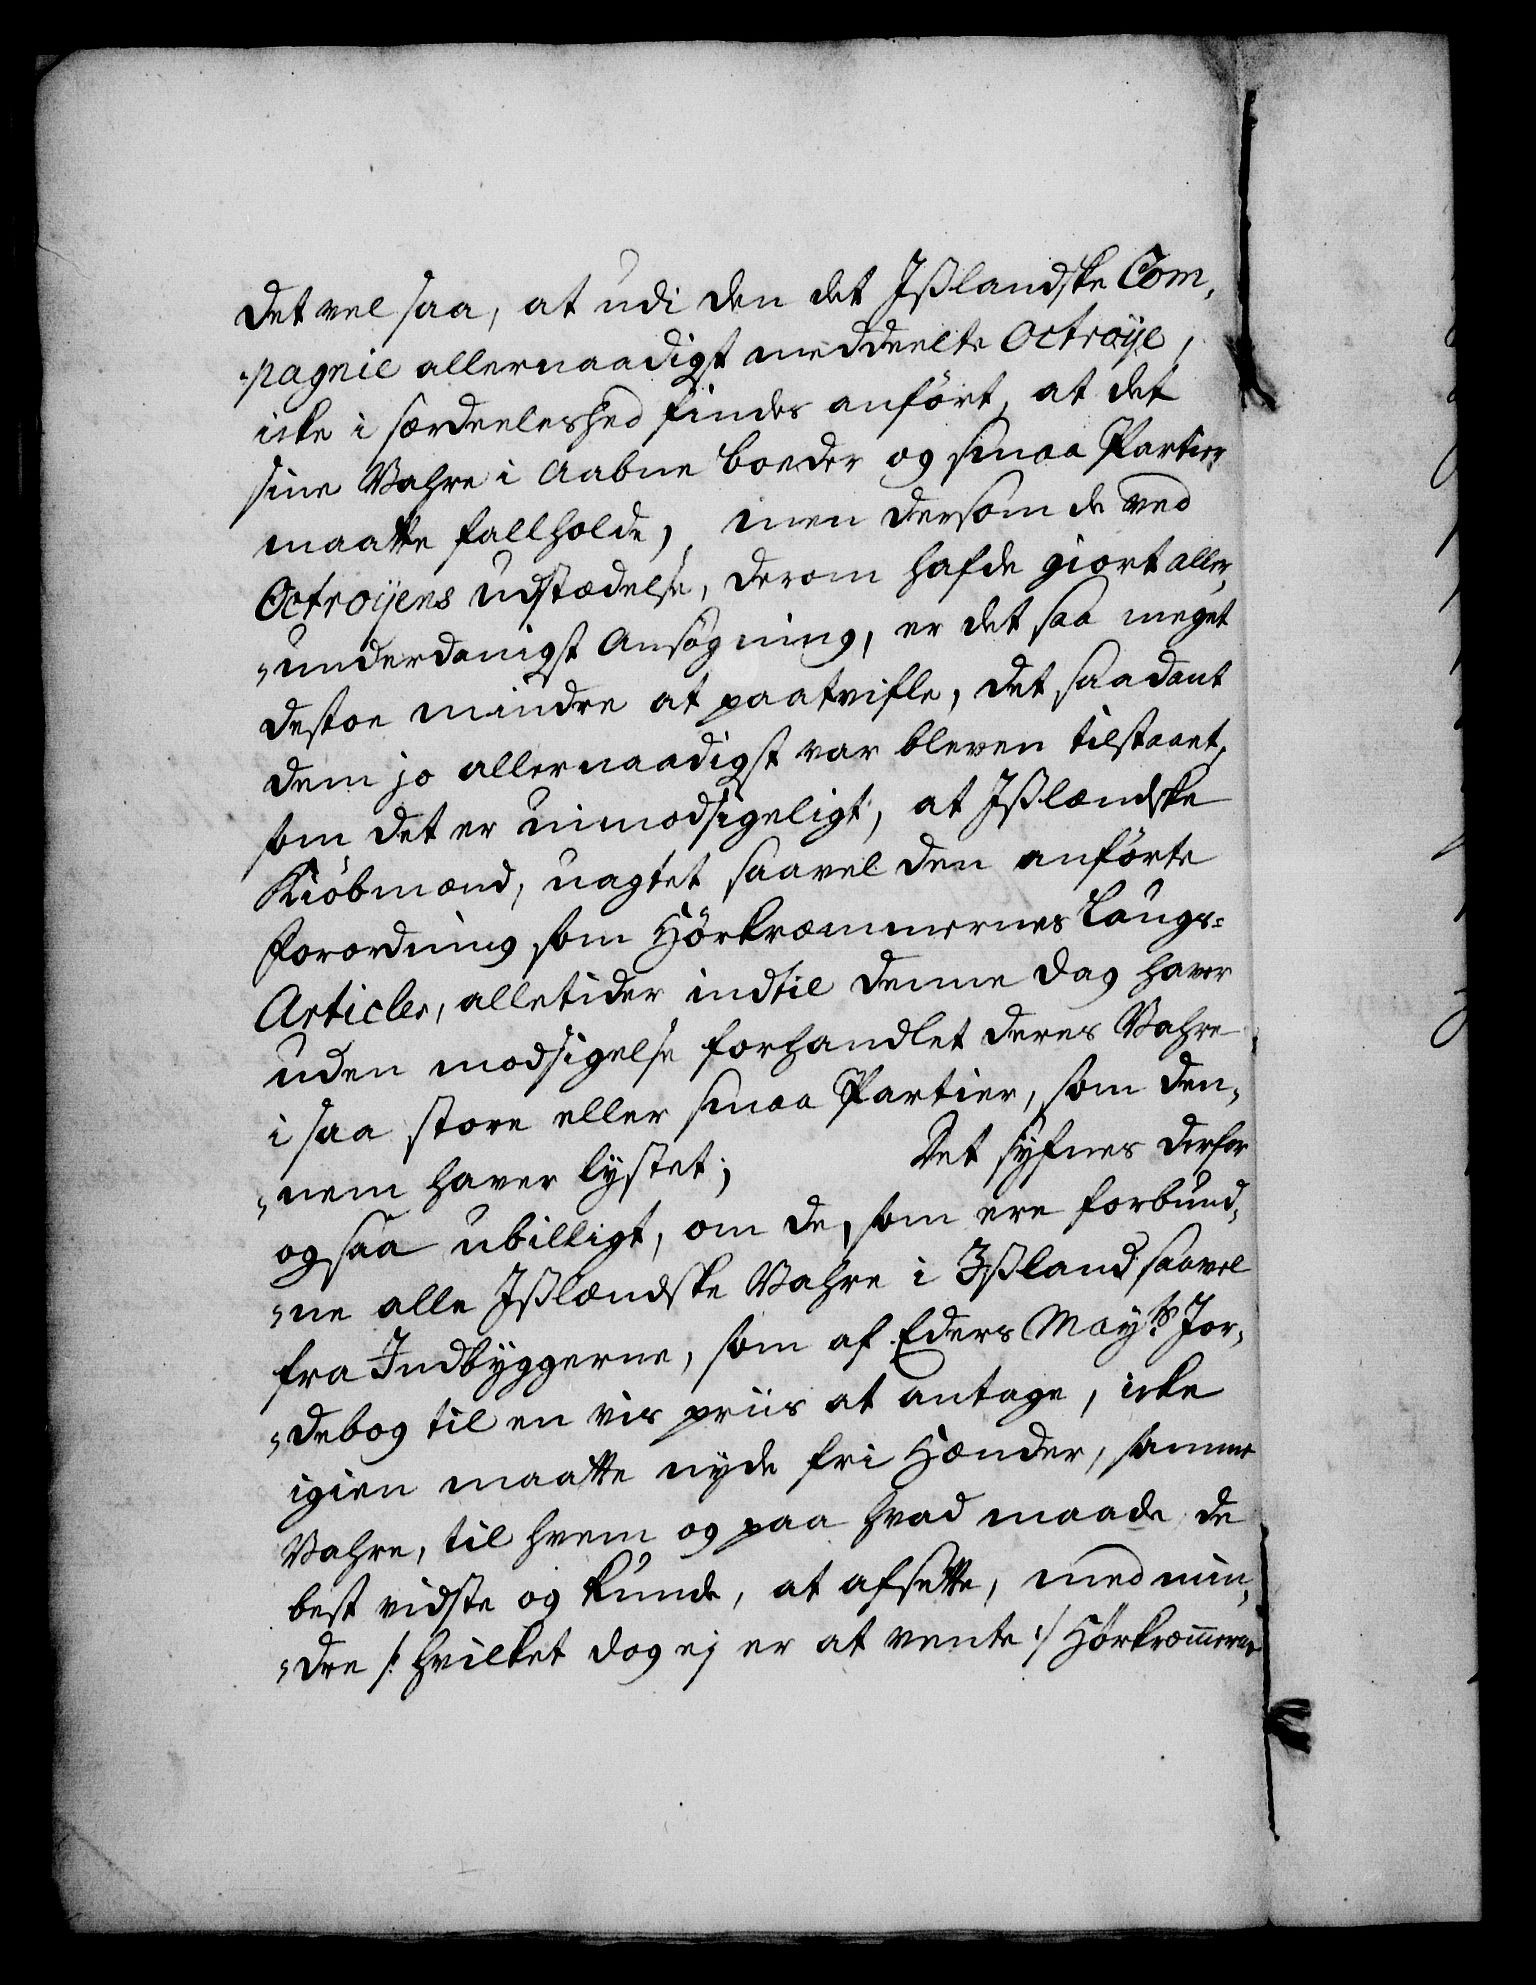 det vel saa, at udi den det Jßlandske Com,
„pagnie allernaadigst meddeelte Octroÿe,
icke i særdeeleshed findes anført, at det
sine Vahre i Aabne boeder og smaa Partier
maatte fallholde, men dersom de ved
Octroÿens udstædelse, derom hafde giort aller,
„underdanigst Ansøgning, er det saa meget
destoe mindre at paatvifle, det saadant
dem jo allernaadigst var bleven tilstaaet,
som det er uimodsigeligt, at Jßlændske
Kiøbmænd, uagtet saavel den anførte
forordning som Hørkræmmernes Laugs=
Articler, alletider indtil denne dag haver
uden modsigelse forhandlet deres Vahre
i saa store eller smaa Partier, som den,
„nem haver lÿstet; Det sÿfnes derfor
ogsaa ubilligt, om de, som ere forbund,
„ne alle Jßlændske Vahre i Jßland saavel
fra Indbÿggerne, som af Eders Mayts Jor,
„debog til en vis priis at antage, icke
igien maatte nÿde fri Hænder, samme
Vahre, til hvem og paa hvad maade de
best vidste og kunde, at afsette, med min,
„dre /: hvilket dog ej er at vente :/ Hørkræmmerne